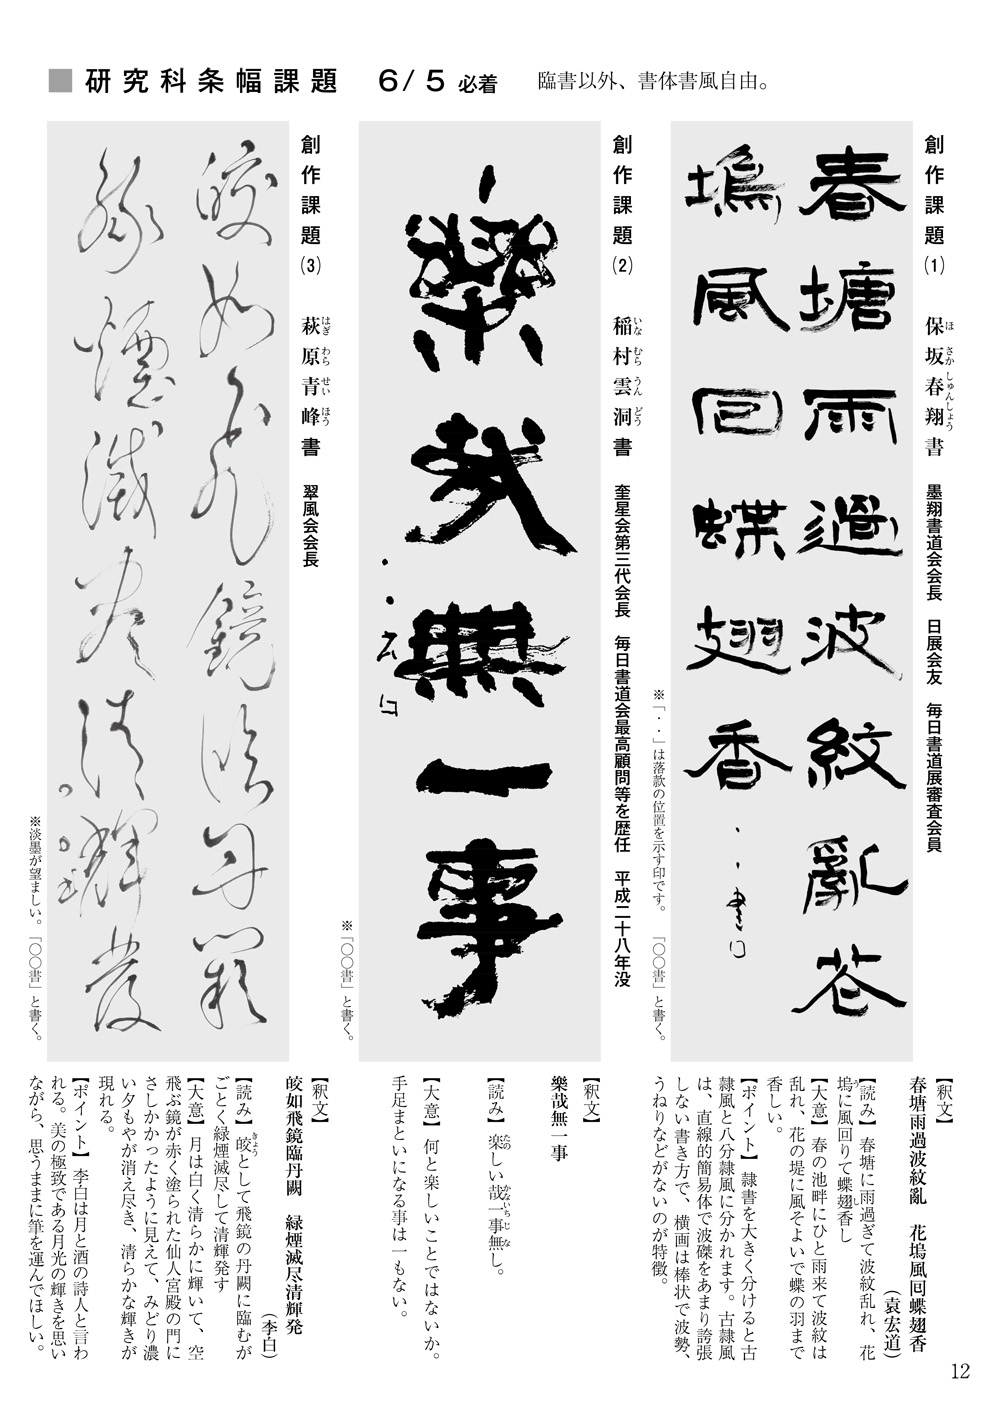 ■研究科条幅課題　6/5 必着　臨書以外、書体書風自由。
創作課題(1)　保坂春翔書　墨翔書道会会長　日展会友　毎日書道展審査会員
ほ　さか　しゅんしょう
春塘雨過波紋亂花
塢風回蝶翅香
書
※「・・」は落款の位置を示す印です。　「〇〇書」と書く。
創作課題(2)　稲村雲洞書　奎星会第三代会長　毎日書道会最高顧問等を歴任　平成二十八年没
いな　むら　うん　どう
樂哉無一事
※「〇〇書」と書く。
創作課題(3)　萩原青峰書　翠風会会長
はぎ　わら　せい　ほう
皎如飛鏡臨丹闕
緑煙滅尽清輝発
※淡墨が望ましい。「〇〇書」と書く。
【釈文】
春塘雨過波紋亂　花塢風回蝶翅香
（袁宏道）
【読み】春塘に雨過ぎて波紋乱れ、花
塢に風回りて蝶翅香し
う　し
【大意】春の池畔にひと雨来て波紋は
乱れ、花の堤に風そよいで蝶の羽まで
香しい。
【ポイント】隷書を大きく分けると古
隷風と八分隷風に分かれます。古隷風
は、直線的簡易体で波磔をあまり誇張
しない書き方で、横画は棒状で波勢、
うねりなどがないのが特徴。
【釈文】
樂哉無一事
【読み】楽しい哉一事無し。
たの　かないちじ　な
【大意】何と楽しいことではないか。
手足まといになる事は一もない。
【釈文】
皎如飛鏡臨丹闕　緑煙滅尽清輝発
（李白）
【読み】皎として飛鏡の丹闕に臨むが
きょう
ごとく緑煙滅尽して清輝発す
【大意】月は白く清らかに輝いて、空
飛ぶ鏡が赤く塗られた仙人宮殿の門に
さしかかったように見えて、みどり濃
い夕もやが消え尽き、清らかな輝きが
現れる。
【ポイント】李白は月と酒の詩人と言わ
れる。美の極致である月光の輝きを思い
ながら、思うままに筆を運んでほしい。
12